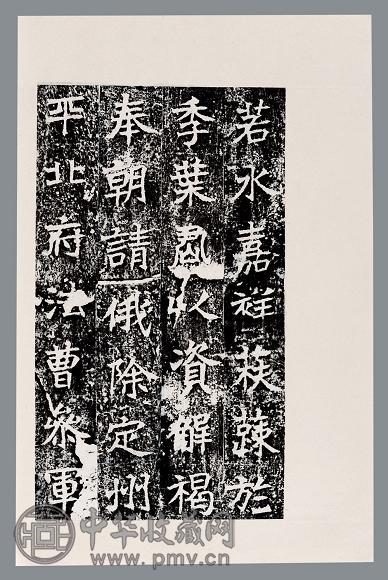 若水嘉祥荴蔬於
季葉君以資解褐
奉朝請俄除定州
平北府法曹叅軍
中华收藏网
www.pmv.cn